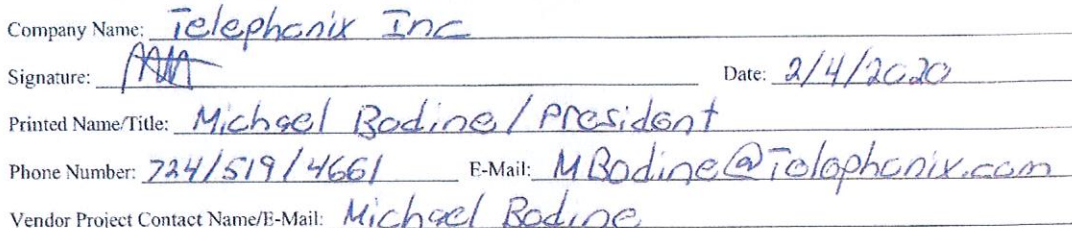 Company Name: Telephonix Inc
Signature: Date: 2/4/2020
Printed Name/Title: Michael Bodine / President
Phone Number: 724/519/4661 E-Mail: MBodine@Telephonix.com
Vendor Project Contact Name/E-Mail: Michael Bodine